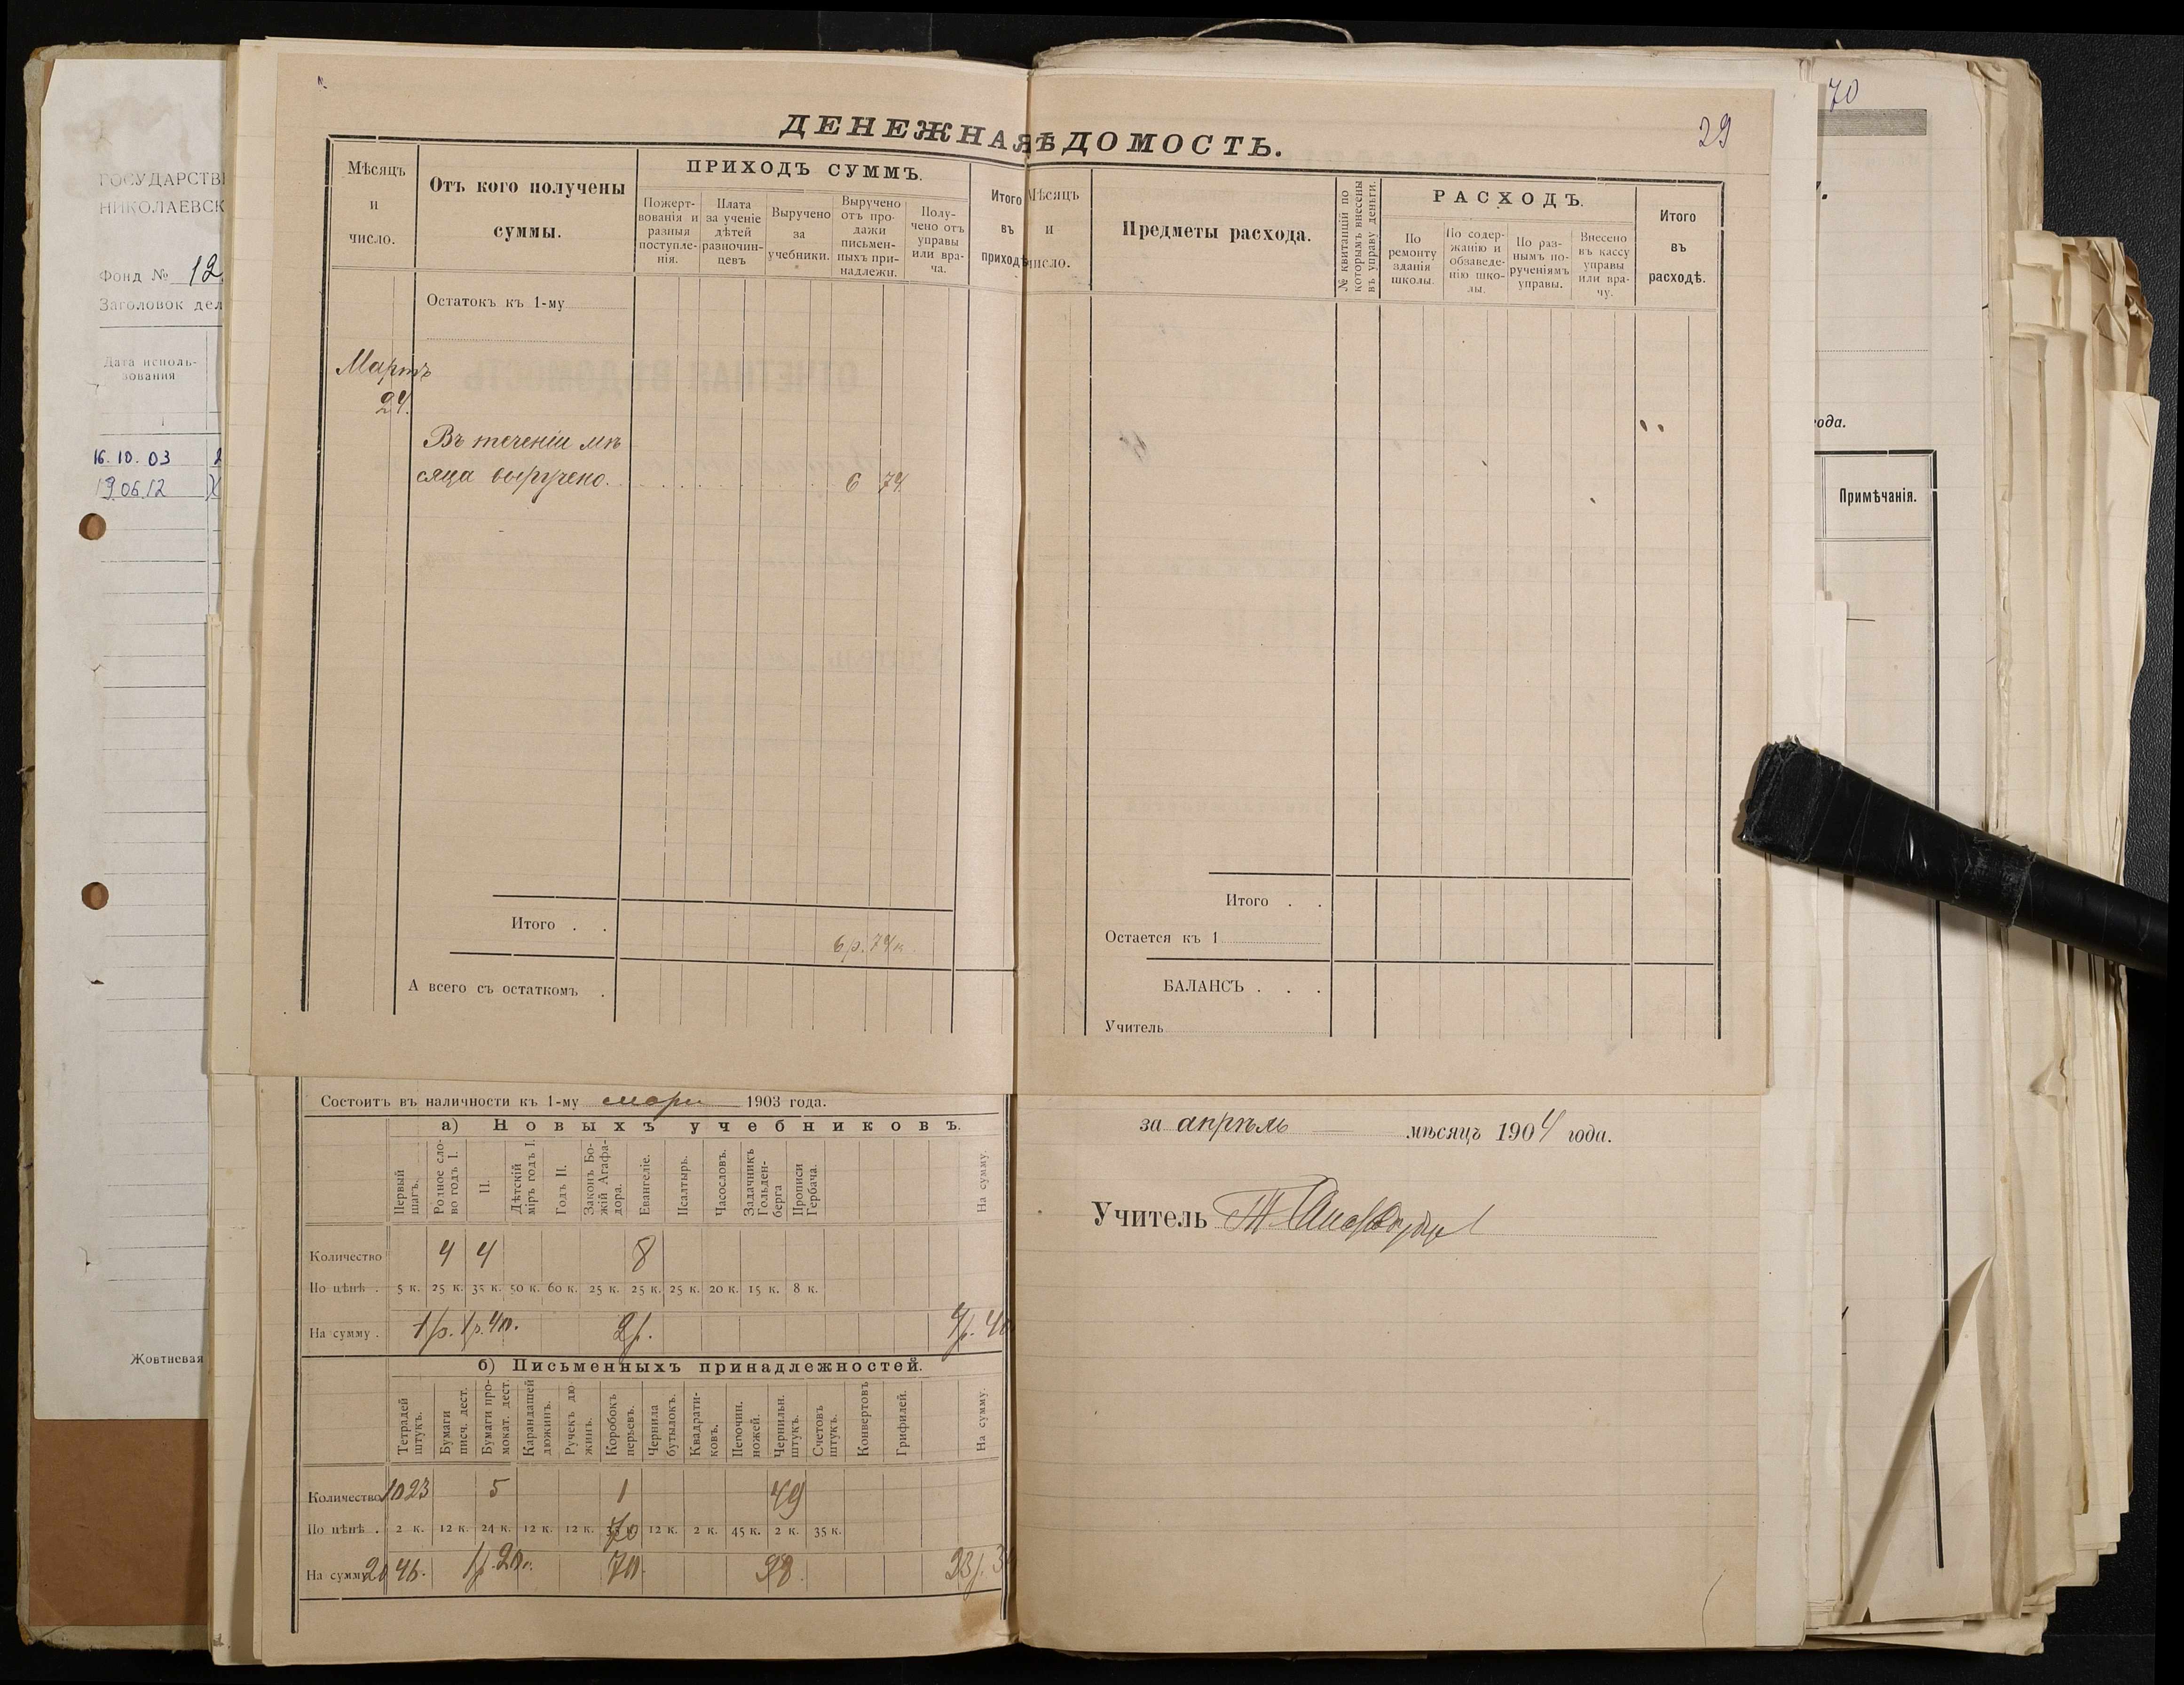 ГОСУДАРСТВ
НИКОЛАЕВСК
Фонд № 12
Заголовок дел
Дата исполь-
зования
16.10.03
19.06.12
Жовтневая
70
ода.
Примѣчанія.
29
ДЕНЕЖНАЯ
ѢДОМОСТЬ.
Мѣсяцъ
и
число.
Отъ кого получены
суммы.
ПРИХОДЪ СУММЪ.
Пожерт-
вованія и
разныя
поступле-
нія.
Плата
за ученіе
дѣтей
разночин-
цевъ
Выручено
за
учебники.
Выручено
отъ про-
дажи
письмен-
ныхъ при-
надлежн.
Полу-
чено отъ
управы
или вра-
ча.
Итого
въ
приходѣ
Остатокъ къ 1-му
Мартъ
24.
Въ теченіи мѣ
сяца выручено. 6 74
Итого . .
6 р. 74 к.
А всего съ остаткомъ .
Мѣсяцъ
и
число.
Предметы расхода.
№ квитанцій по
которымъ внесены
въ управу деньги.
РАСХОДЪ.
По
ремонту
зданія
школы.
По содер-
жанію и
обзаведе-
нію шко-
лы.
По раз-
нымъ по-
рученіямъ
управы.
Внесено
въ кассу
управы
или вра-
чу.
Итого
въ
расходѣ.
Итого . .
Остается къ 1
БАЛАНСЪ . . .
Учитель
Состоитъ въ наличности къ 1-му 1903 года.
а) Новыхъ учебниковъ.
Первый
шагъ.
Родное сло-
во годъ I.
II.
Дѣтскій
міръ годъ I.
Годъ II.
Законъ Бо-
жій Агафа-
дора.
Евангеліе.
Псалтырь.
Часословъ.
Задачникъ
Гольден-
берга
Прописи
Гербача.
На сумму.
Количество 4 4 8
По цѣнѣ . 5 к. 25 к. 35 к. 50 к. 60 к. 25 к. 25 к. 25 к. 20 к. 15 к. 8 к.
На сумму . 1 р. 1 р. 40. 2 р. 4 р. 40
б) Письменныхъ принадлежностей.
Тетрадей
штукъ.
Бумаги
писч. дест.
Бумаги про-
мокат. дест.
Карандашей
дюжинъ.
Ручекъ дю
жинъ.
Коробокъ
перьевъ.
Чернила
бутылокъ.
Квадрати-
ковъ.
Перочин.
ножей.
Чернильн.
штукъ.
Счетовъ
штукъ.
Конвертовъ
Грифилей.
На сумму.
Количество 1023 5 1 49
По цѣнѣ . 2 к. 12 к. 24 к. 12 к. 12 к. 70 12 к. 2 к. 45 к. 2 к. 35 к.
На сумму 20 46. 1 р. 20 70. 98. 23 р. 3
за апрѣль мѣсяцъ 1904 года.
Учитель